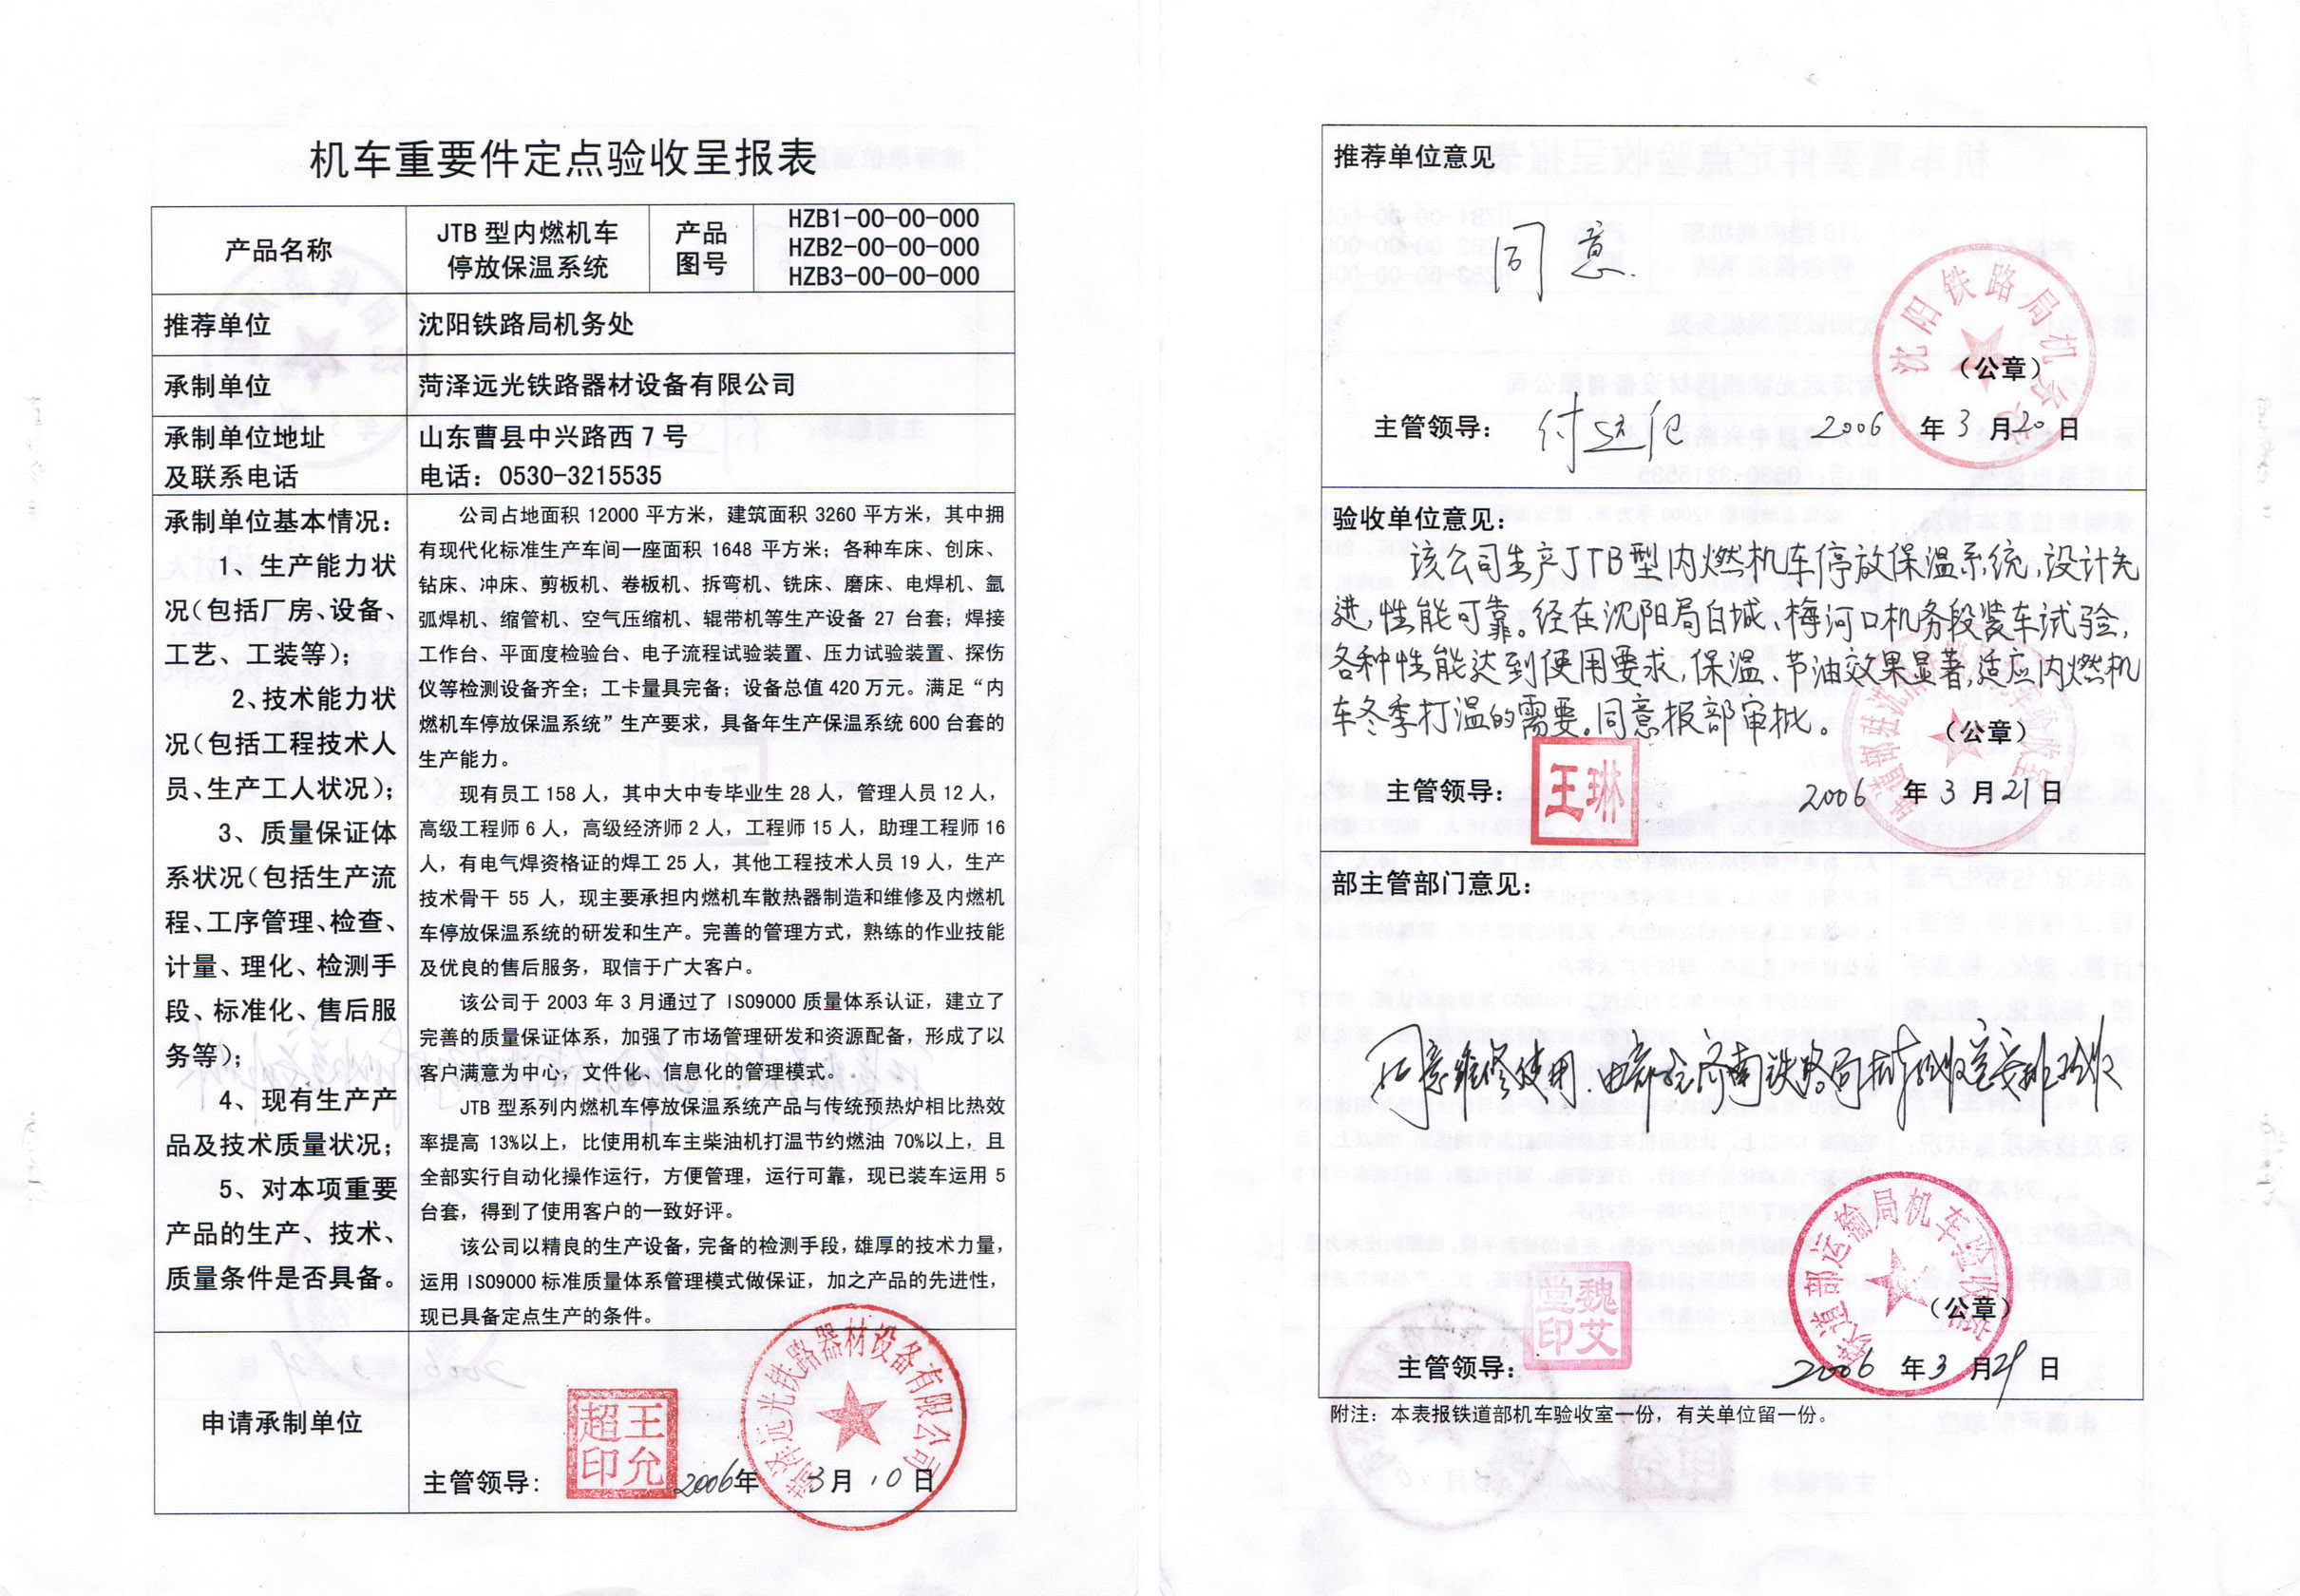 机车重要件定点验收呈报表
产品名称
JTB 型内燃机车
停放保温系统
产品
图号
HZB1-00-00-000
HZB2-00-00-000
HZB3-00-00-000
推荐单位
沈阳铁路局机务处
承制单位
菏泽远光铁路器材设备有限公司
承制单位地址
及联系电话
山东曹县中兴路西 7 号
电话：0530-3215535
承制单位基本情况：
1、生产能力状
况（包括厂房、设备、
工艺、工装等）；
2、技术能力状
况（包括工程技术人
员、生产工人状况）；
3、质量保证体
系状况（包括生产流
程、工序管理、检查、
计量、理化、检测手
段、标准化、售后服
务等）；
4、现有生产产
品及技术质量状况；
5、对本项重要
产品的生产、技术、
质量条件是否具备。
公司占地面积 12000 平方米，建筑面积 3260 平方米，其中拥
有现代化标准生产车间一座面积 1648 平方米；各种车床、创床、
钻床、冲床、剪板机、卷板机、折弯机、铣床、磨床、电焊机、氩
弧焊机、缩管机、空气压缩机、辊带机等生产设备 27 台套；焊接
工作台、平面度检验台、电子流程试验装置、压力试验装置、探伤
仪等检测设备齐全；工卡量具完备；设备总值 420 万元。满足“内
燃机车停放保温系统”生产要求，具备年生产保温系统 600 台套的
生产能力。
现有员工 158 人，其中大中专毕业生 28 人，管理人员 12 人，
高级工程师 6 人，高级经济师 2 人，工程师 15 人，助理工程师 16
人，有电气焊资格证的焊工 25 人，其他工程技术人员 19 人，生产
技术骨干 55 人，现主要承担内燃机车散热器制造和维修及内燃机
车停放保温系统的研发和生产。完善的管理方式，熟练的作业技能
及优良的售后服务，取信于广大客户。
该公司于 2003 年 3 月通过了 ISO9000 质量体系认证，建立了
完善的质量保证体系，加强了市场管理研发和资源配备，形成了以
客户满意为中心，文件化、信息化的管理模式。
JTB 型系列内燃机车停放保温系统产品与传统预热炉相比热效
率提高 13%以上，比使用机车主柴油机打温节约燃油 70%以上，且
全部实行自动化操作运行，方便管理，运行可靠，现已装车运用 5
台套，得到了使用客户的一致好评。
该公司以精良的生产设备，完备的检测手段，雄厚的技术力量，
运用 ISO9000 标准质量体系管理模式做保证，加之产品的先进性，
现已具备定点生产的条件。
申请承制单位
主管领导：
王允超印
2006年 3月 10 日
菏泽远光铁路器材设备有限公司
推荐单位意见
同意.
沈阳铁路局机务处
（公章）
主管领导：
2006 年 3 月 20 日
验收单位意见：
该公司生产JTB型内燃机车停放保温系统，设计先
进，性能可靠。经在沈阳局白城、梅河口机务段装车试验，
各种性能达到使用要求，保温、节油效果显著，适应内燃机
车冬季打温的需要。同意报部审批。
（公章）
主管领导：
王琳
2006 年 3 月 21 日
部主管部门意见：
同意维修使用.由部驻济南铁路局机车验收室安排验收
铁道部运输局机车验收室
（公章）
主管领导：
魏艾堂印
2006 年 3 月 29 日
附注：本表报铁道部机车验收室一份，有关单位留一份。